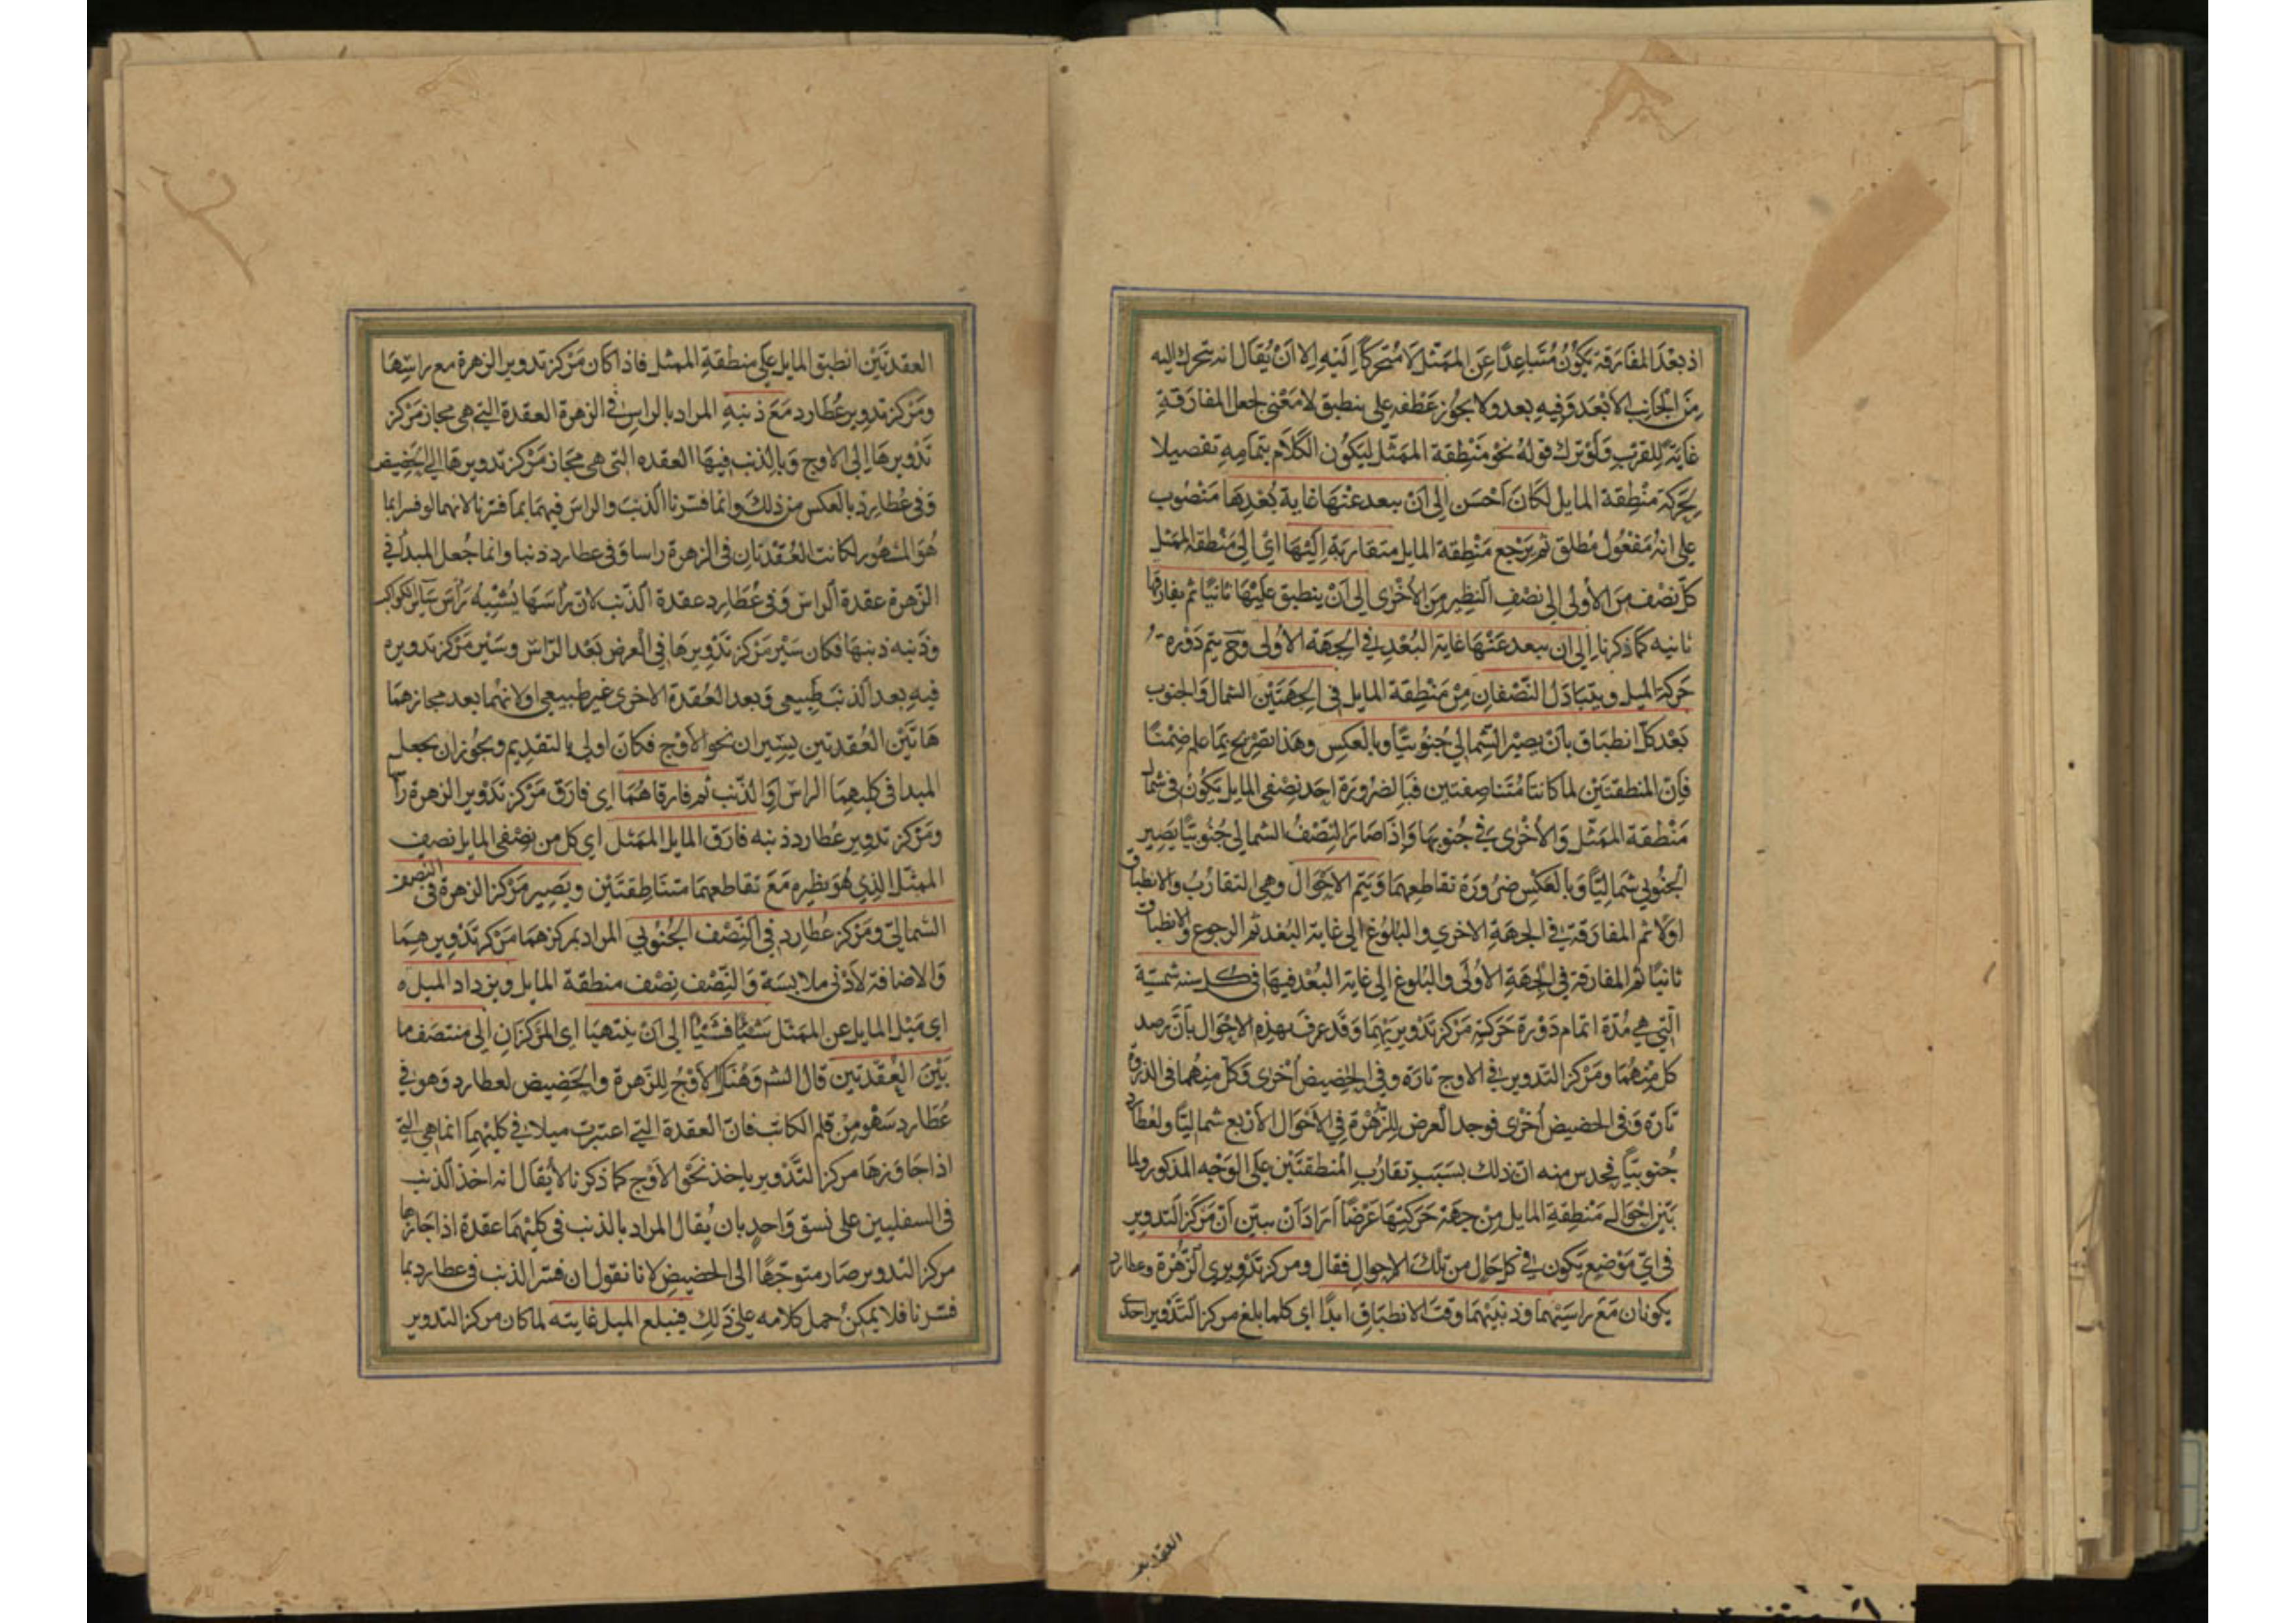 اذ بعْدَ المفَارَقة يَكُوُنُ مُتَبَاعِدًا عَنِ الممَثّل لَا مُتحَركًا اِلَيْهِ اِلا اَنْ يُقَال انه يتحرك اليه
مِنَ الجَانِب الأبْعَد وَفيِهِ بعد ولا يجوُز عَطفه على ينطبق لا مَعْنى لجعل المفارَقَةِ
غايَةً لِلقرْبِ وَلَوْ ترك قولهُ نحْو مَنْطِقة الممَثّل ليَكُون الكَلَام بتمَامِهِ تفصيلا
لِحَرَكةِ مِنْطِقة المايل لكَانَ اَحْسَن اِلى اَنْ يبعد عنْهَا غاية بُعْدِهَا مَنْصُوب
على انهُ مَفْعُول مُطلق ثم يَرْجع مَنْطِقة المايل متقاربَة اِلَيْهَا اىْ اِلى مَنْطقة الممَثل
كلّ نصْف مِنَ الأولى الى نصْفِ النظِير مِنَ الأخْرى اِلى اَنْ ينطبق عليْهَا ثانيًا ثم يفارقها
ثانيه كمَا ذكرنا اِلى ان يبعد عَنْهَا غاية البُعْدِ فى الجِهَة الأولى وحَ يتم دَوْره
حَركة الميل ويتبَادَل النّصْفانِ مِنْ مَنْطِقة المايل فى الجِهَتَيْن الشمال وَالجنوب
بَعْد كل انطبَاق بأنْ يصيْر الشمالي جُنوُبيّا وبالعكسِ وهَذا تصْريح بمَا علم ضِمْنًا
فاِنّ المنطقتَيْن لما كانتا مُتَناصِفتين فبَالضرُورَة احَد نصْفى المايل يَكُونُ فى شمال
مَنْطقة الممَثّل وَالأخْرى فى جُنوبهَا وَإذَا صَارَ النِصْفُ الشمالي جُنُوبيّا يَصِير
الجنُوبي شمَاليّا وَبالعَكْسِ ضرُورَة تقاطعهمَا وَيَتم الاحْوَال وهي التقارُب والانطباق
اوَلًا ثم المفارَقة فى الجهَة الاخري والبُلُوغ الى غاية البُعْد ثم الرجوع والانطباق
ثانيًا ثم المفارَقة فى الجِهَةِ الأولَى والبُلوغ الى غاية البُعْد فيهَا فى كل سنه شمسيّة
الّتى هي مُدّة اتمام دَوْرَة حَرَكة مَركز تَدْويرَيْهِمَا وَقَد عرفَ بهذِهِ الاحْوَال بأنْ رصد
كل مِنْهُمَا ومَركز التدوير فى الاوج تارَة وفي الحَضيض أخْرى وَكل منهُمَا فى الذروة
تارَة وَفى الحضيض أخْرَى فوجد العرض للزُّهْرة فى الأحْوَال الأرْبع شماليّا ولعُطارد
جُنوبيّا فحدس منه انّ ذلك بسَبَب تقارُب المنطقتَيْن عَلى الوَجْه المذكور ولما
بَيّن احْوَالَ مَنْطِقةِ المايل مِنْ جهَة حَرَكتِهَا عَرْضًا اَرَادَ اَنْ يبيّن اَنّ مَركَزَ التدوير
فى ايّ مَوْضِع يَكون فى كل حَال من تلكَ الاحوال فقال ومركز تدْويري الزّهْرة وعطارد
يكونان مَعَ راسَيْهمَا وذنبَيْهمَا وقت الانطبَاقِ ابدًا اى كلما بلغ مركز التَدْوير احدى
العقدتين
العقدتَيْن انطبق المايل عَلى منطقةِ الممثل فاذا كان مَرْكز تدوير الزهرة مع راسِهَا
ومَرْكز تدوير عُطارد مَعَ ذنبه المراد بالراسِ فى الزهرَة العقدة التي هى مجاز مَرْكز
تَدْويرهَا اِلى الاوج وَبالذنب فيهَا العقده التى هى مجَاز مَرْكز تدويرهَا الى الحضيض
وَفى عُطارد بالعكسِ من ذلكَ وانما فسّرنا الذنبَ والراسَ فيهمَا بمَا فسّرنا لانهما لو فسرا بما
هُوَ المشهُور لكانت العُقْدتان فى الزهرة راسا وَفى عطارد ذنبا وانما جُعل المبدأ فى
الزّهرة عقدة الراسْ وَفى عُطارد عقدة الذّنب لان رَأسَهَا يُشْبِهُ رَأسَ سَاير الكواكب
وذَنبه ذنبهَا فكان سَيْر مَرْكز تَدْويرهَا فى العرض بَعْد الرّاسْ وسَيْر مَرْكز تدويره
فيهِ بعد الذنب طبيعى وبعد العُقدة الاخرى غير طبيعى او لانهُمَا بعد مجازهمَا
هَاتَيْن العُقدتين يسيران نحو الأوْج فكانَ اولى بالتقديم ويجوُز ان يجعل
المبدا فى كليهمَا الراسْ اوِ الذّنب ثم فارقاهُمَا اى فارَق مَرْكز تدْوير الزهرة راسها
ومَرْكز تدوير عُطارد ذنبه فارَق المايل الممَثل اي كل من نصْفى المايل نصف
الممثّل الذِي هُوَ نظيره مَعَ تقاطعهمَا متنَاصِفتَيْن ويَصِير مَرْكز الزهرة فى النصف
الشمَاليّ ومَرْكز عُطارد فى النِّصْف الجُنُوبي المراد بمركزهمَا مَركز تَدْويرهِمَا
وَالاضافة لأدْنى ملابسَة وَالنِّصْف نِصْف منطقة المايل ويزداد الميل
اى مَيْل المايل عن الممَثّل شَيْئًا فشَيْئًا الى اَنْ ينتهيَا اى المَرْكزانِ الى منتصَف ما
بَيْنَ العُقْدتين قال الشم وَهُنَاكَ الأوْجُ للزّهرة وَالحَضِيض لعطارد وَهو فى
عُطارد سَهْو مِنْ قلم الكاتب فانّ العقدة التي اعتبرت ميلا فى كليْهمَا انمَا هى التي
اذا جَاوَزهَا مركز التَّدْوير ياخذ نحْو الأوْج كمَا ذكرنا لا يُقال انه اخذ الذنب
فى السفليين على نسق وَاحدٍ بان يُقال المراد بالذنب فى كليْهمَا عقدة اذا جَازها
مركز التدوير صَار متوجّهًا الى الحضيض لانا نقول ان فسّر الذنب فى عطارد بما
فسّرنا فلا يمكنُ حمل كلامه على ذلِكَ فيبلع الميل غايته لما كان مركز التدوير